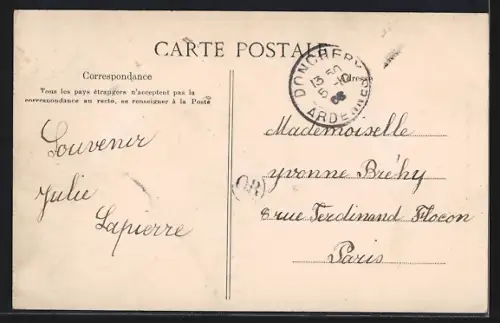 CARTE POSTALE
Correspondance
Tous les pays étrangers n'acceptent pas la
correspondance au recto, se renseigner à la Poste
Souvenir
Julie
Lapierre
DONCHERY
13 50
5 -10
06
ARDENNES
OR
Mademoiselle
Yvonne Bréhy
8 rue Ferdinand Flocon
Paris